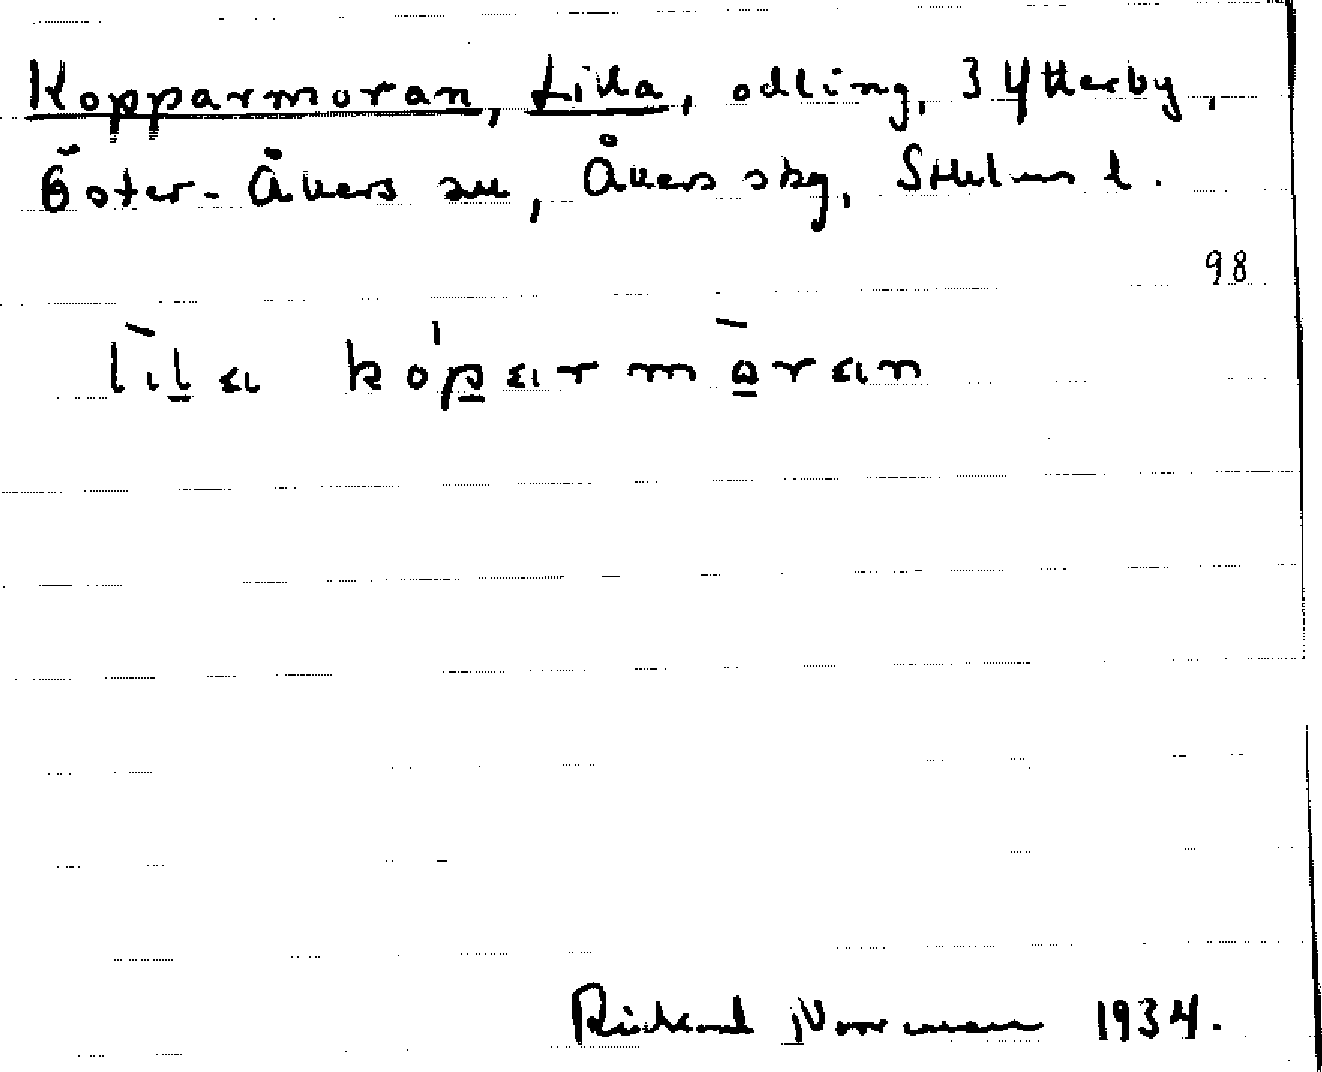 Kopparmoran, Lilla, odling, 3 Ytterby,
Öster-Åkers sn, Åkers skg, Sthlms l.
98
lila kóparmōran
Rickard Norrman 1934.